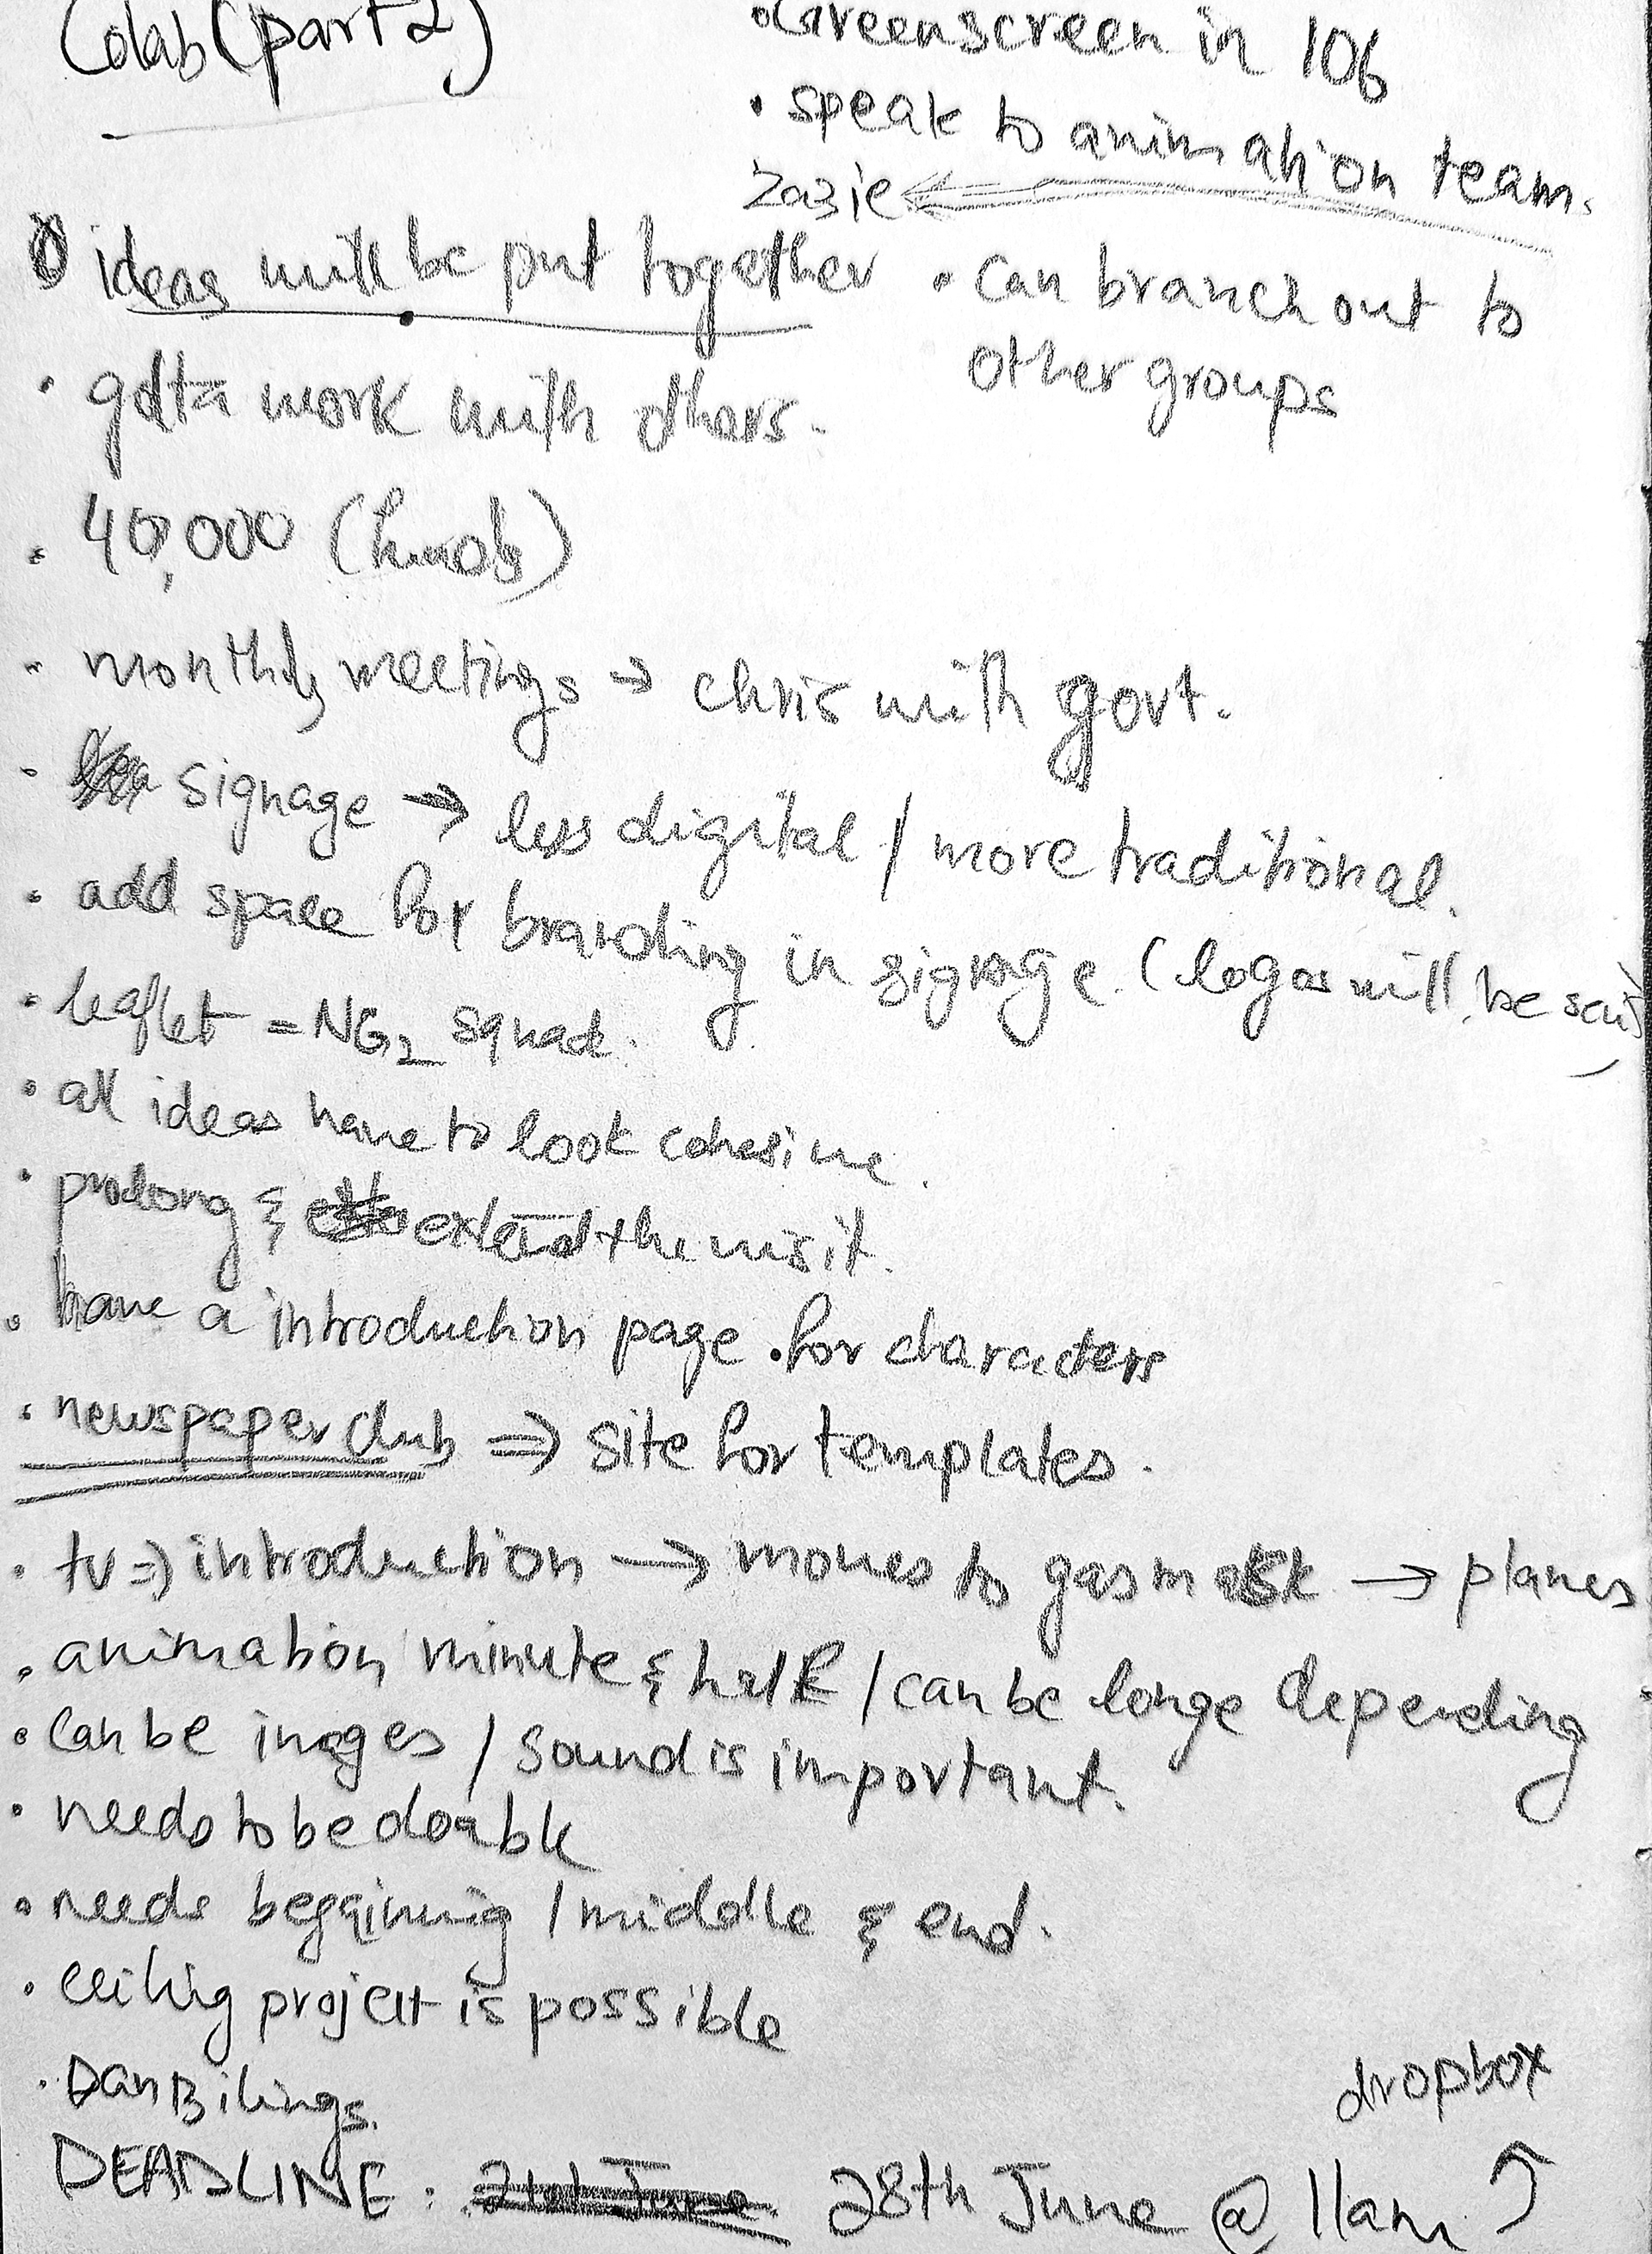 Colab (part 2)
• Greenscreen in 106
• speak to animation team.
Zazie
ideas will be put together
• can branch out to
other groups
• gotta work with others.
• 40,000
• monthly meetings → chris with govt.
• signage → less digital / more traditional.
• add space for branding in signage. (logos will be
• leaflet = NG2 squad.
• all ideas have to look cohesive.
• prolong & extend the visit.
• have a introduction page for characters
• newspaper club ⇒ site for templates.
• tv ⇒ introduction → moves to gas mask → planes
• animation minute & half / can be longe depending
• can be images / sound is important.
• needs to be doable
• needs beggining / middle & end.
• ceiling project is possible
• Dan Bilings.
dropbox
DEADLINE: 21st June 28th June @ 11am